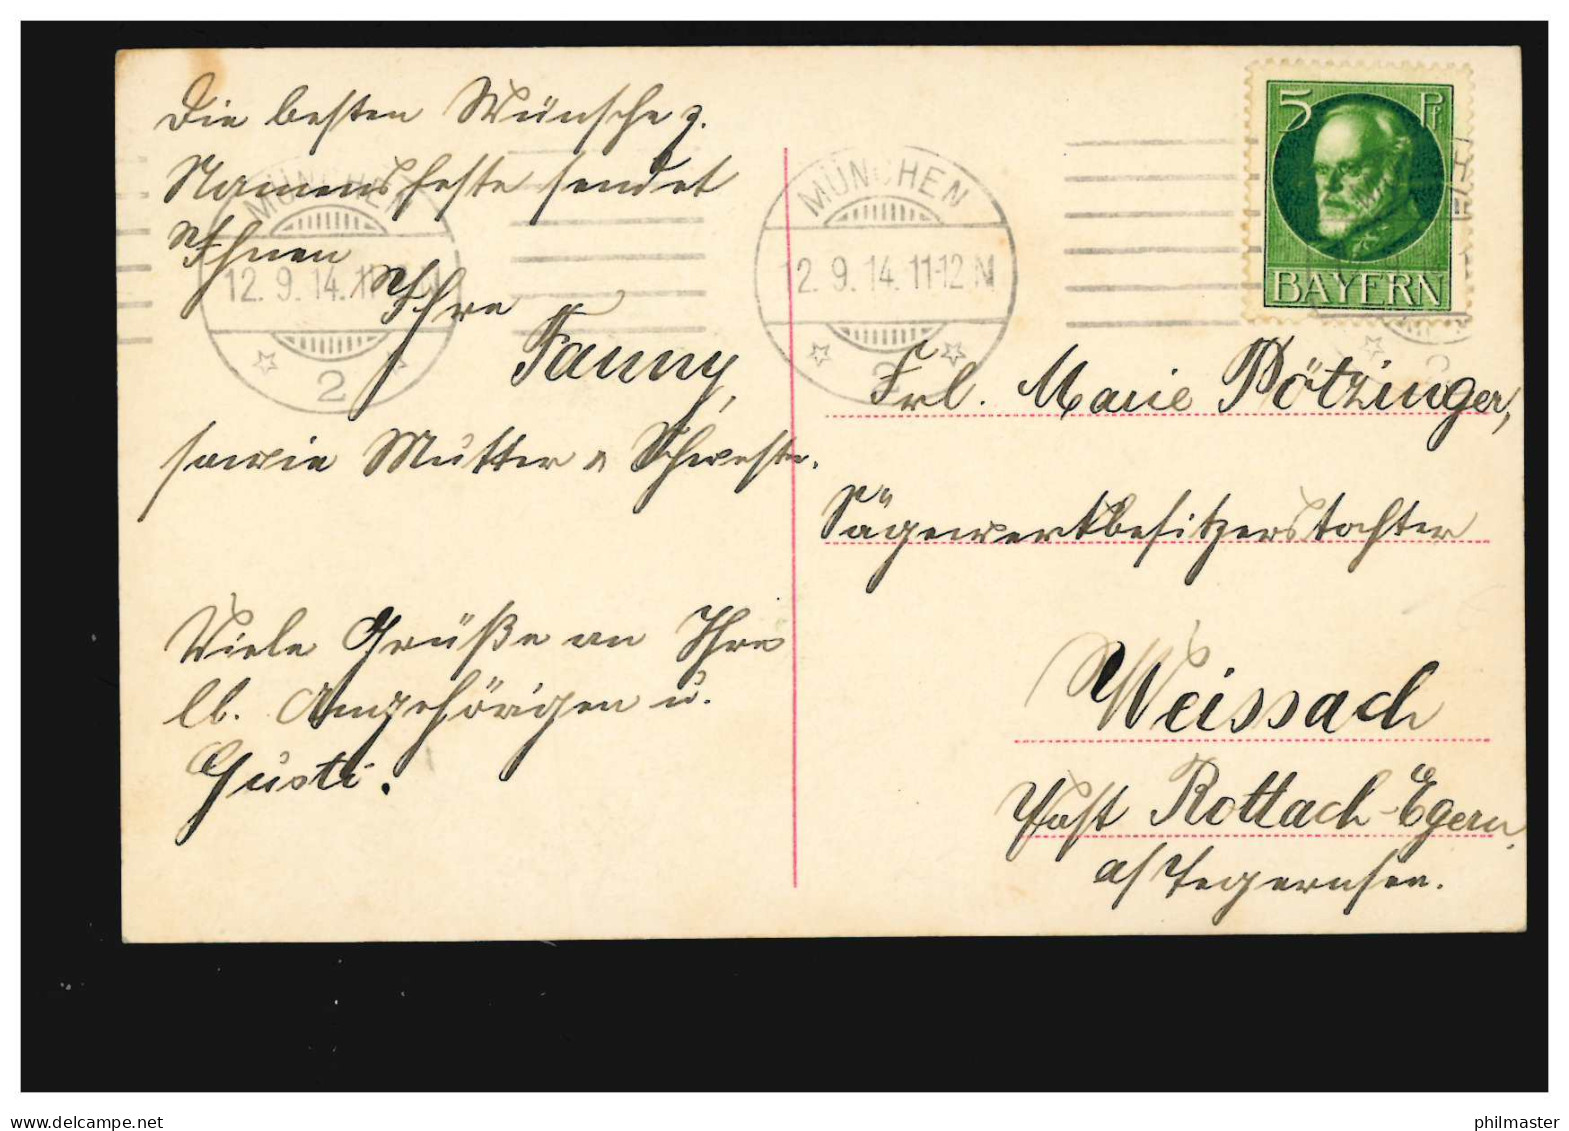 Die besten Wünsche z.
Namensfeste sendet
Ihnen
Ihre
Fanny,
sowie Mutter u Schwester.
Viele Grüße an Ihre
lb. Angehörigen u.
Gusti.
MÜNCHEN
12.9.14.11-12 N
2
MÜNCHEN
12.9.14.11-12 N
2
5 Pf
BAYERN
Frl. Marie Pötzinger,
Sägewerkbesitzerstochter
Weissach
Post Rottach-Egern,
a/Tegernsee.
delcampe.net
philmaster